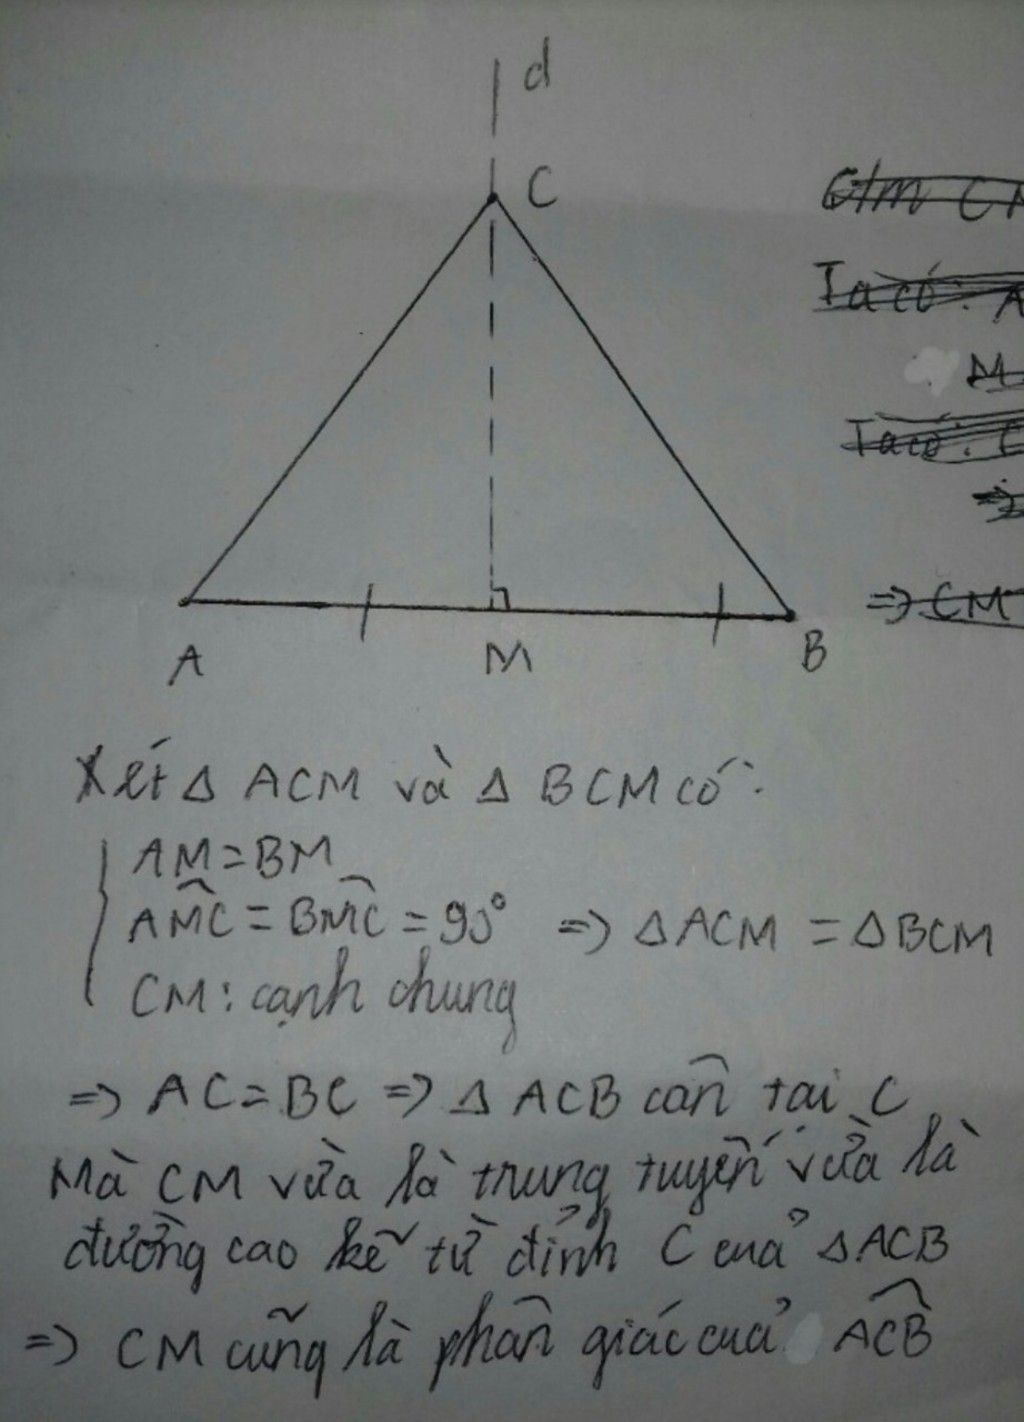 d
C
C/m CM
Ta có: A
M
Ta có: C
=>
=> CM
A M B
Xét Δ ACM và Δ BCM có:
AM = BM
AMC = BMC = 90° => ΔACM = ΔBCM
CM: cạnh chung
=> AC = BC => Δ ACB cân tại C
Mà CM vừa là trung tuyến vừa là
đường cao kẽ từ đỉnh C của ΔACB
=> CM cũng là phân giác của ACB